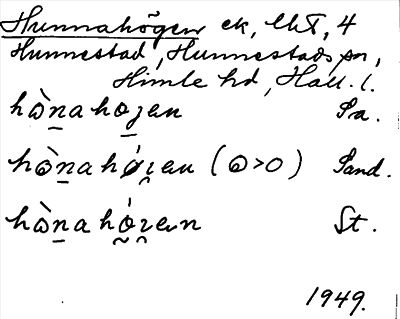 Hunnahögen ek, Ubt, 4
Hunnestad, Hunnestads sn,
Himle hd, Hall. l.
hònahogen Sa.
hònahózen (o>o) Sand.
hònahózen St.
1949.